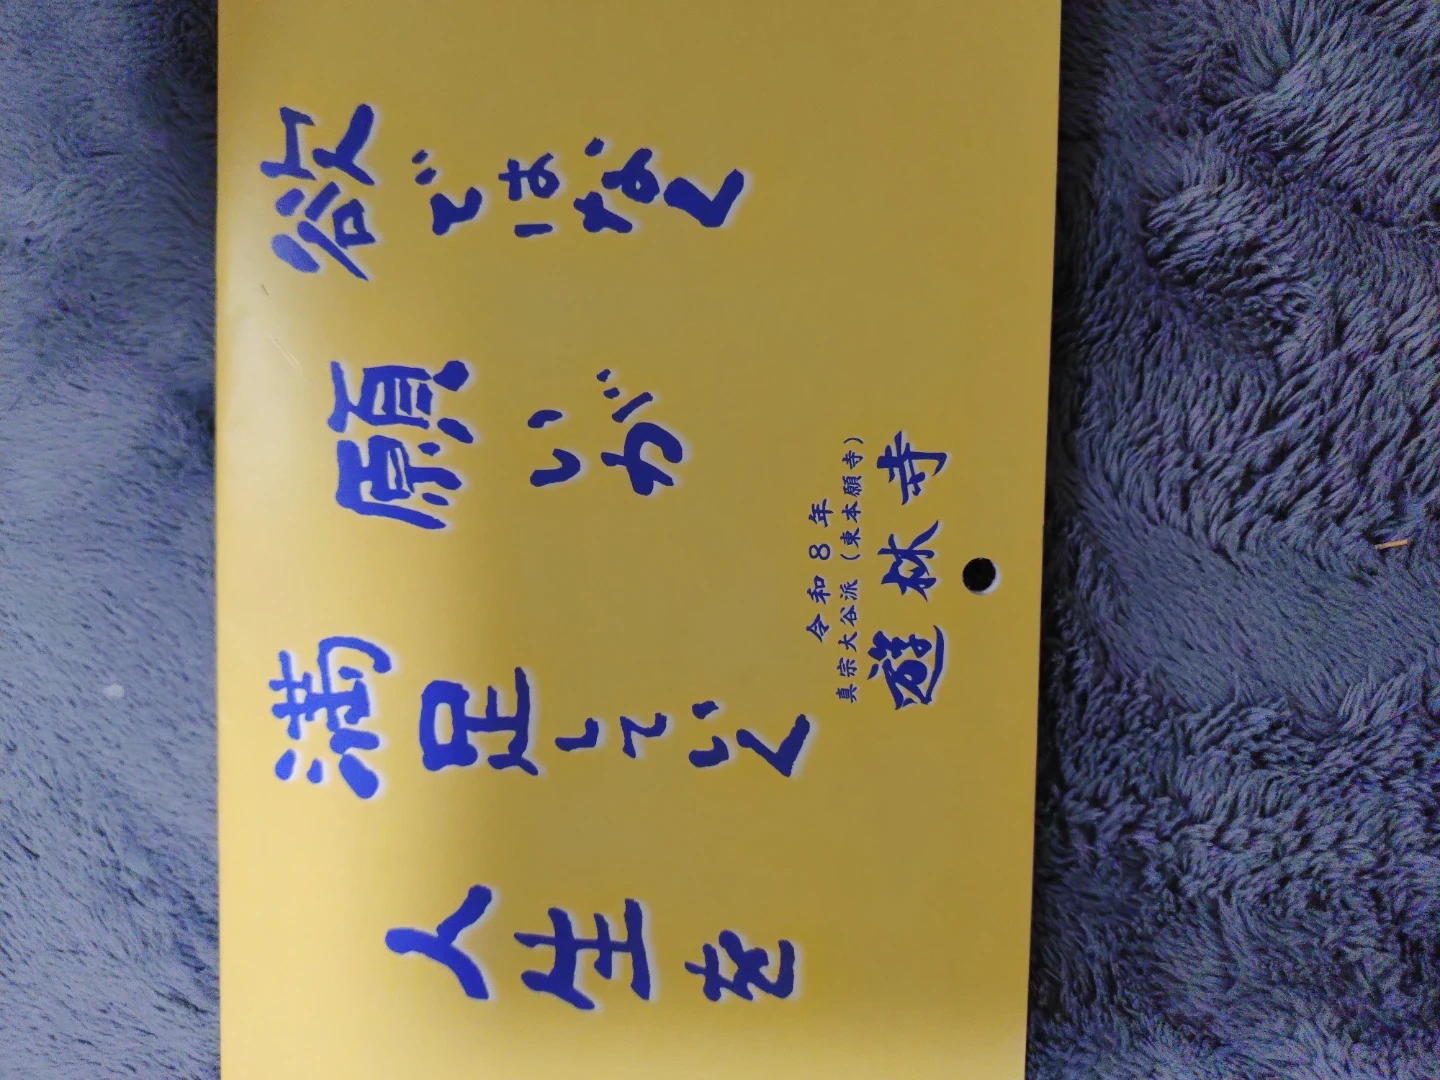 欲ではなく
願いが
満足していく
人生を
令和8年
真宗大谷派（東本願寺）
遊林寺